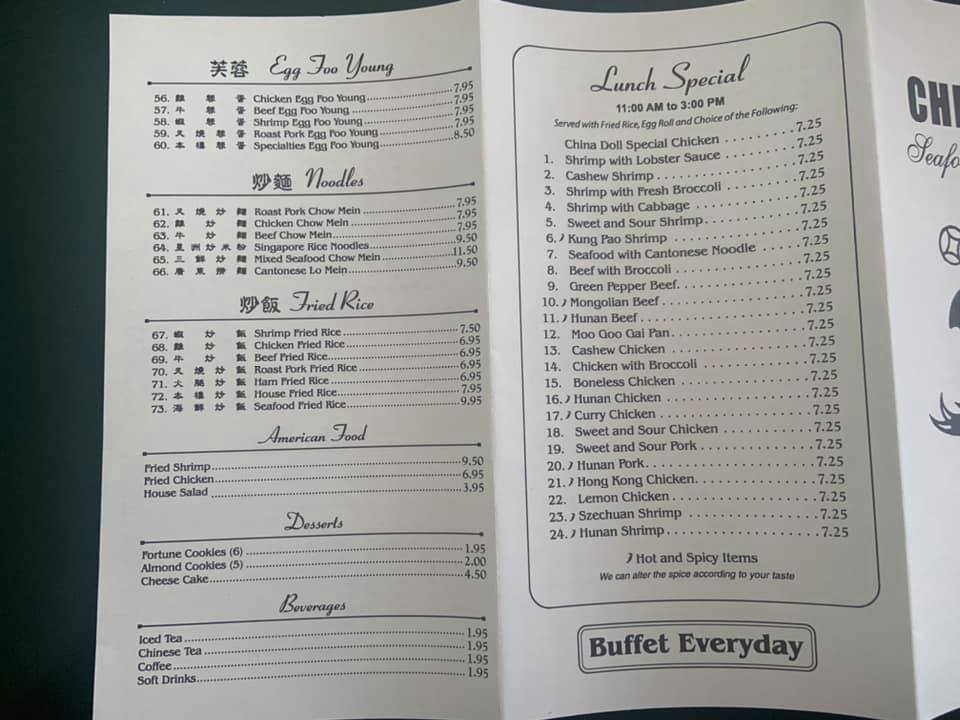 芙蓉 Egg Foo Young
56. 雞 蓉 蛋 Chicken Egg Foo Young 7.95
57. 牛 蓉 蛋 Beef Egg Foo Young 7.95
58. 蝦 蓉 蛋 Shrimp Egg Foo Young 7.95
59. 叉 燒 蓉 蛋 Roast Pork Egg Foo Young 7.95
60. 本 樓 蓉 蛋 Specialties Egg Foo Young 8.50
炒麵 Noodles
61. 叉 燒 炒 麵 Roast Pork Chow Mein 7.95
62. 雞 炒 麵 Chicken Chow Mein 7.95
63. 牛 炒 麵 Beef Chow Mein 7.95
64. 星 洲 炒 米 粉 Singapore Rice Noodles 9.50
65. 三 鮮 炒 麵 Mixed Seafood Chow Mein 11.50
66. 廣 東 撈 麵 Cantonese Lo Mein 9.50
炒飯 Fried Rice
67. 蝦 炒 飯 Shrimp Fried Rice 7.50
68. 雞 炒 飯 Chicken Fried Rice 6.95
69. 牛 炒 飯 Beef Fried Rice 6.95
70. 叉 燒 炒 飯 Roast Pork Fried Rice 6.95
71. 火 腿 炒 飯 Ham Fried Rice 6.95
72. 本 樓 炒 飯 House Fried Rice 7.95
73. 海 鮮 炒 飯 Seafood Fried Rice 9.95
American Food
Fried Shrimp 9.50
Fried Chicken 6.95
House Salad 3.95
Desserts
Fortune Cookies (6) 1.95
Almond Cookies (5) 2.00
Cheese Cake 4.50
Beverages
Iced Tea 1.95
Chinese Tea 1.95
Coffee 1.95
Soft Drinks 1.95
Lunch Special
11:00 AM to 3:00 PM
Served with Fried Rice, Egg Roll and Choice of the Following:
China Doll Special Chicken 7.25
1. Shrimp with Lobster Sauce 7.25
2. Cashew Shrimp 7.25
3. Shrimp with Fresh Broccoli 7.25
4. Shrimp with Cabbage 7.25
5. Sweet and Sour Shrimp 7.25
6. Kung Pao Shrimp 7.25
7. Seafood with Cantonese Noodle 7.25
8. Beef with Broccoli 7.25
9. Green Pepper Beef 7.25
10. Mongolian Beef 7.25
11. Hunan Beef 7.25
12. Moo Goo Gai Pan 7.25
13. Cashew Chicken 7.25
14. Chicken with Broccoli 7.25
15. Boneless Chicken 7.25
16. Hunan Chicken 7.25
17. Curry Chicken 7.25
18. Sweet and Sour Chicken 7.25
19. Sweet and Sour Pork 7.25
20. Hunan Pork 7.25
21. Hong Kong Chicken 7.25
22. Lemon Chicken 7.25
23. Szechuan Shrimp 7.25
24. Hunan Shrimp 7.25
Hot and Spicy Items
We can alter the spice according to your taste
Buffet Everyday
CHI
Seafo